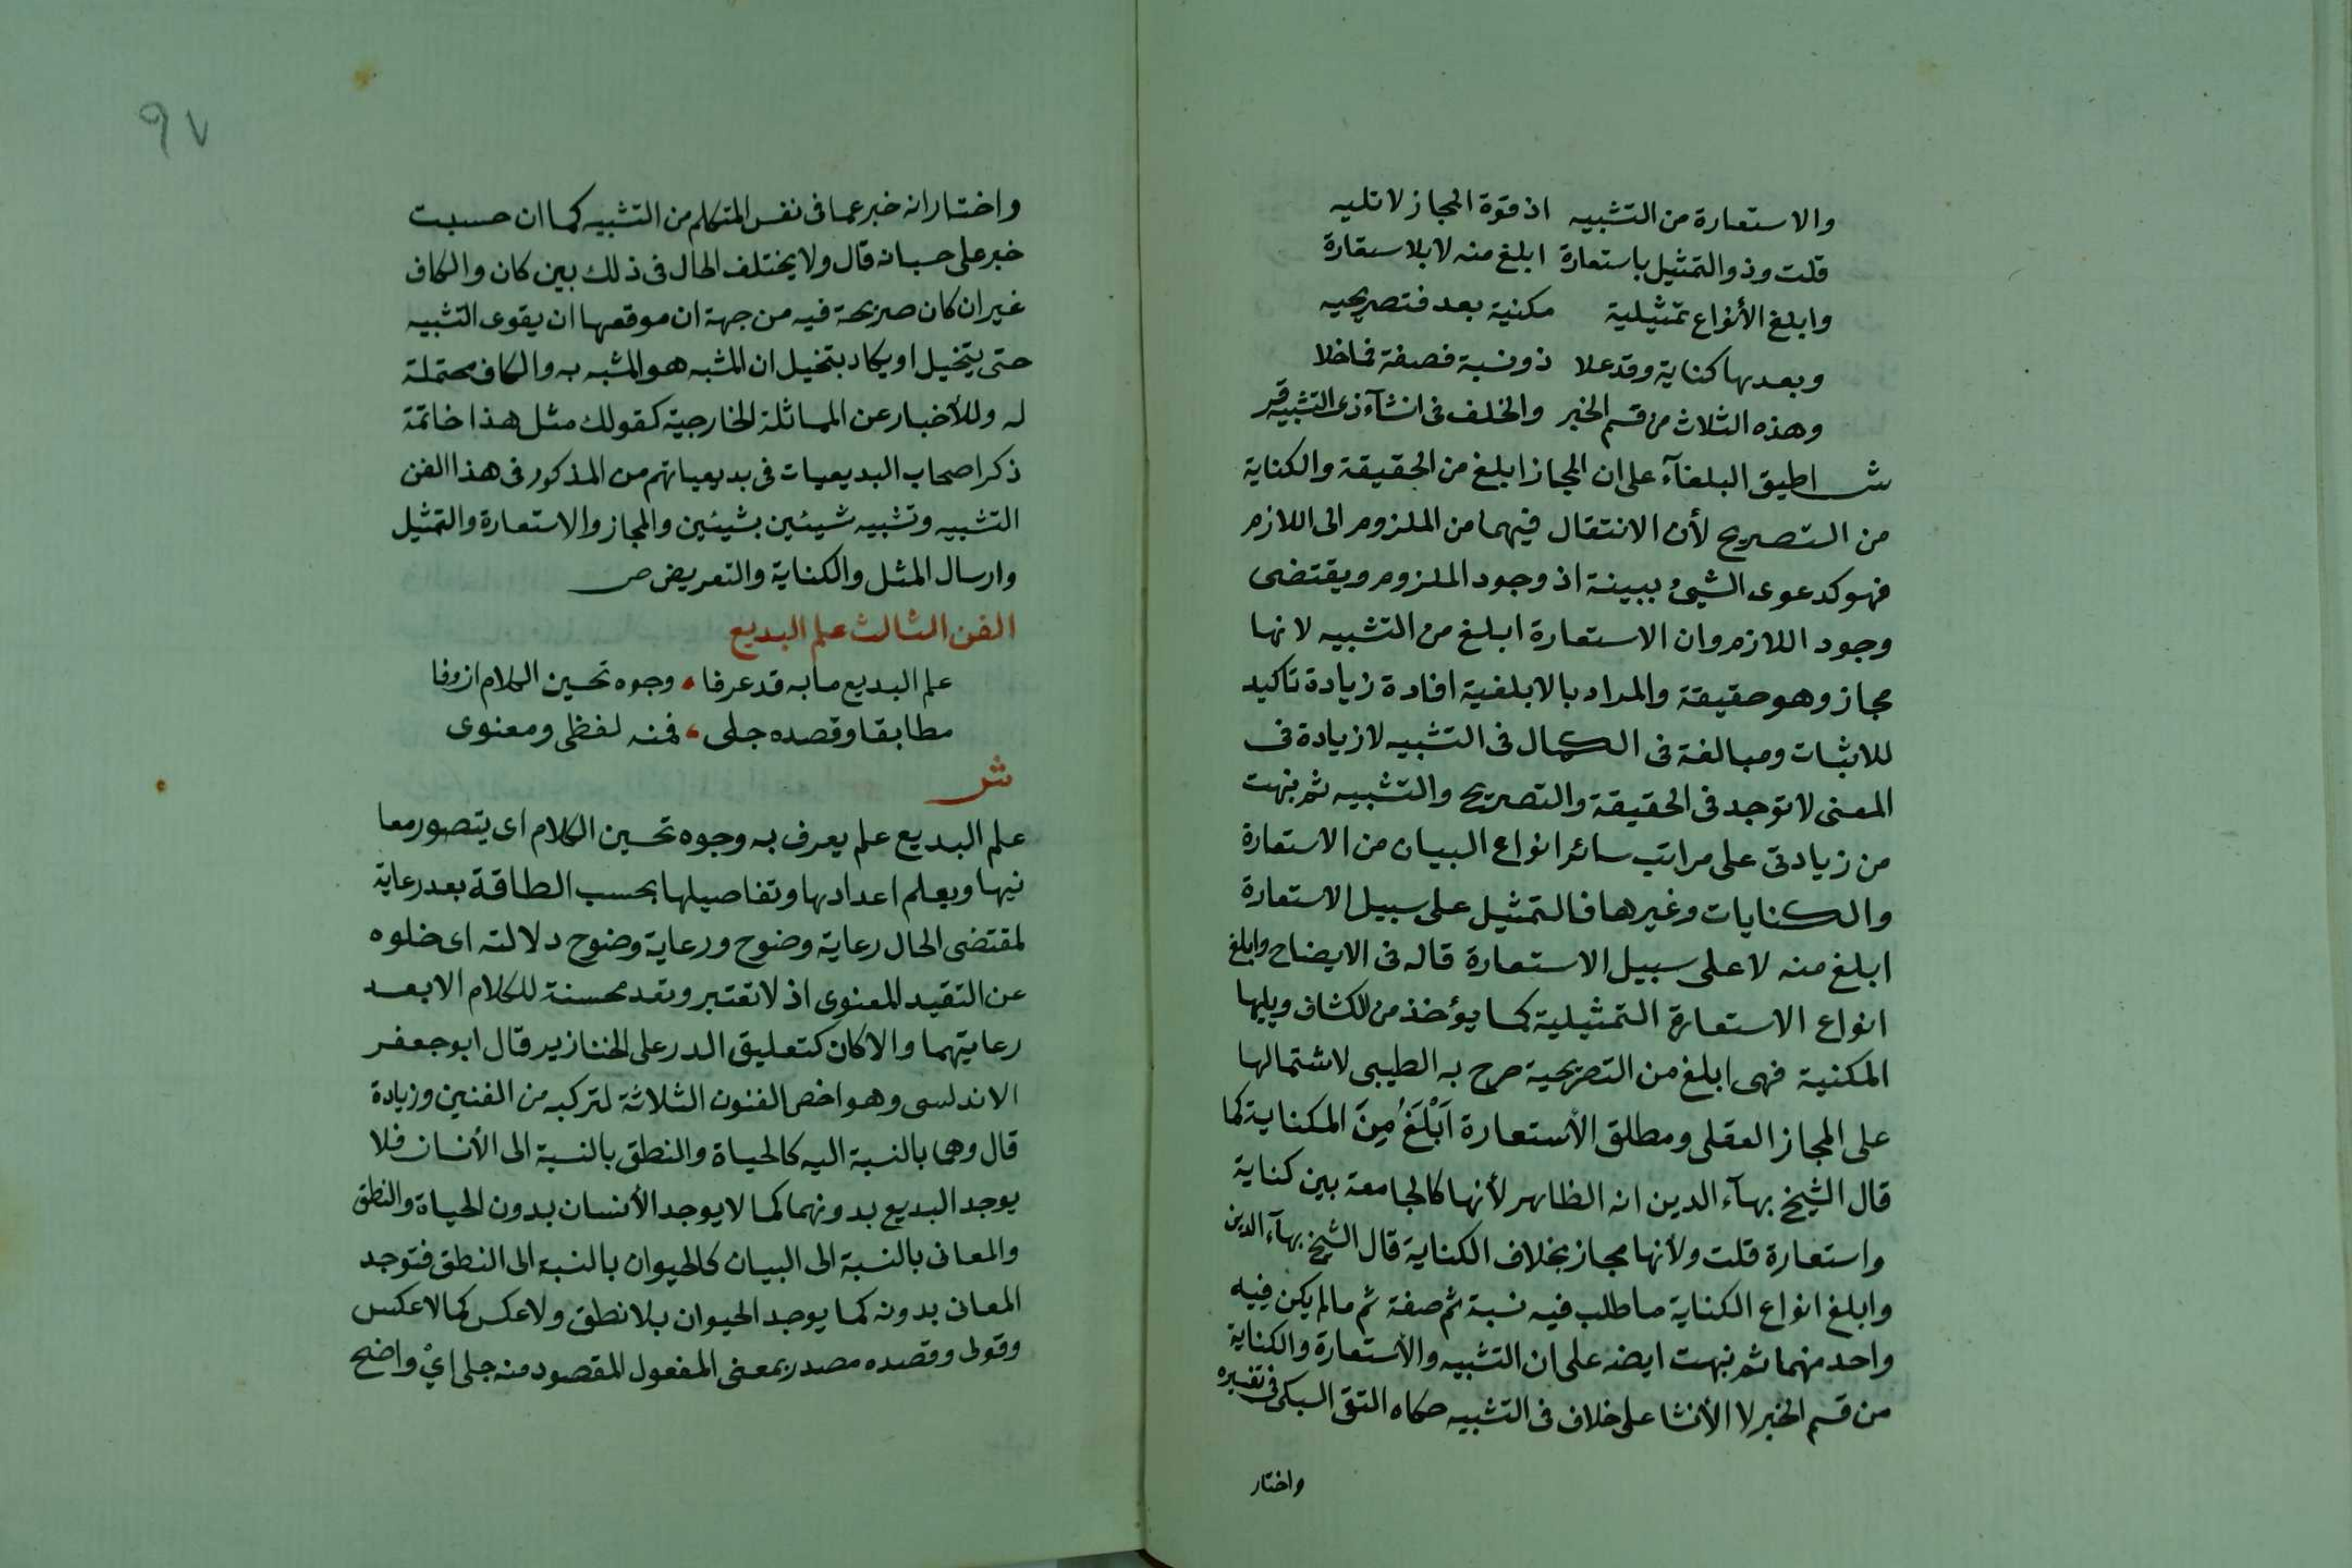 والاستعارة من التشبيه اذ قوة المجاز لا تليه
قلت وذو التمثيل باستعارة ابلغ منه لا بلا ستقارة
وابلغ الأنواع تمثيلية مكنية بعد فتصريحيه
وبعدها كناية وقد علا ذو نسبة فصفة فما خلا
وهذه الثلاث من قسم الخبر والخلف فى انشآء ذى التشبيه قر
ش اطبق البلغآء على ان المجاز ابلغ من الحقيقة والكناية
من التصريح لأن الانتقال فيهما من الملزوم الى اللازم
فهو كدعوى الشيئ ببينة اذ وجود الملزوم ويقتضى
وجود اللازم وان الاستعارة ابلغ من التشبيه لانها
مجاز وهو حقيقة والمراد بالابلغية افادة زيادة تاكيد
للاثبات ومبالغة فى الكمال فى التشبيه لا زيادة فى
المعنى لا توجد فى الحقيقة والتصريح والتشبيه ثم نبهت
من زيادتى على مراتب سائر انواع البيان من الاستعارة
والكنايات وغيرها فالتمثيل على سبيل الاستعارة
ابلغ منه لا على سبيل الاستعارة قاله فى الايضاح وابلغ
انواع الاستعارة التمثيلية كما يؤخذ من الكشاف ويليها
المكنية فهى ابلغ من التصريحية صرح به الطيبى لاشتمالها
على المجاز العقلى ومطلق الأستعارة اَبْلَغُ مِنَ المكناية كما
قال الشيخ بهآء الدين انه الظاهر لأنها كالجامعة بين كناية
واستعارة قلت ولأنها مجاز بخلاف الكناية قال الشيخ بهآء الدين
وابلغ انواع الكناية ما طلب فيه نسبة ثم صفة ثم ما لم يكن فيه
واحد منهما ثم نبهت ايضه على ان التشبيه والأستعارة والكناية
من قسم الخبر لا الأنشا على خلاف فى التشبيه حكاه التقى السبكى فى تفسيره
واختار
٩٧
واختار انه خبر عما فى نفس المتكلم من التشبيه كما ان حسبت
خبر على حسبانه قال ولا يختلف الحال فى ذلك بين كان والكاف
غير ان كان صريحة فيه من جهة ان موقعها ان يقوى التشبيه
حتى يتخيل او يكاد يتخيل ان المشبه هو المشبه به والكاف محتملة
له وللأخبار عن المماثلة الخارجية كقولك مثل هذا خاتمة
ذكر اصحاب البديعيات فى بديعياتهم من المذكور فى هذا الفن
التشبيه وتشبيه شيئين بشيئين والمجاز والاستعارة والتمثيل
وارسال المثل والكناية والتعريض ص
الفن الثالث علم البديع
علم البديع ما به قد عرفا وجوه تحسين الكلام ان وفا
مطابقا وقصده جلى فمنه لفظى ومعنوى
ش
علم البديع علم يعرف به وجوه تحسين الكلام اى يتصور معا
نيها ويعلم اعدادها وتفاصيلها بحسب الطاقة بعد رعاية
لمقتضى الحال رعاية وضوح ورعاية وضوح دلالته اى خلوه
عن التقيد المعنوى اذ لا تعتبر وتعد محسنة للكلام الا بعد
رعايتهما والا كان كتعليق الدر على الخنازير قال ابو جعفر
الاندلسى وهو اخص الفنون الثلاثة لتركبه من الفنين وزيادة
قال وهما بالنسبة اليه كالحياة والنطق بالنسبة الى الأنسان فلا
يوجد البديع بدونهما كما لا يوجد الأنسان بدون الحياة والنطق
والمعانى بالنسبة الى البيان كالحيوان بالنسبة الى النطق فتوجد
المعانى بدونه كما يوجد الحيوان بلا نطق ولا عكس كما لا عكس
وقولى وقصده مصدر بمعنى المفعول المقصود منه جلى اىْ واضح